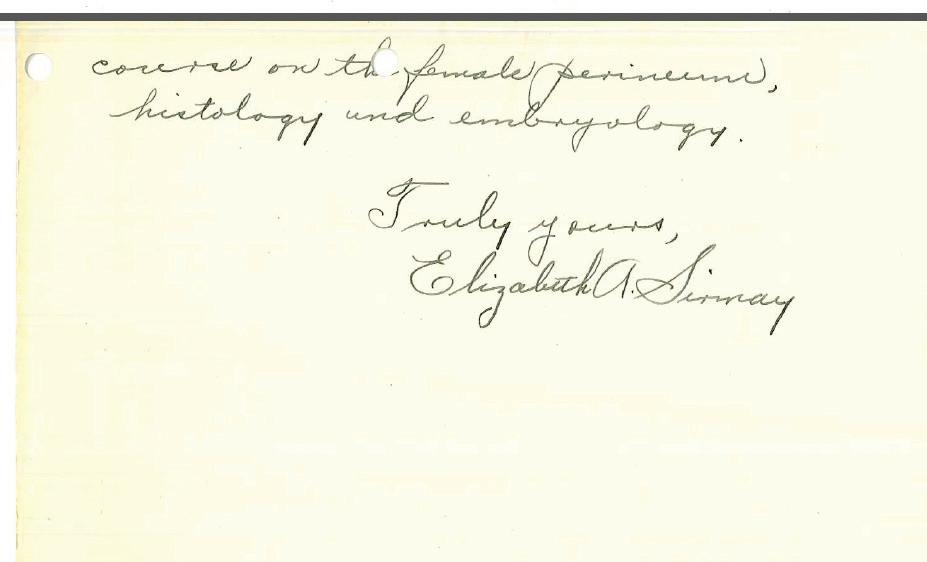 course on the female perineum,
histology and embryology.
Truly yours,
Elizabeth A. Sirmay